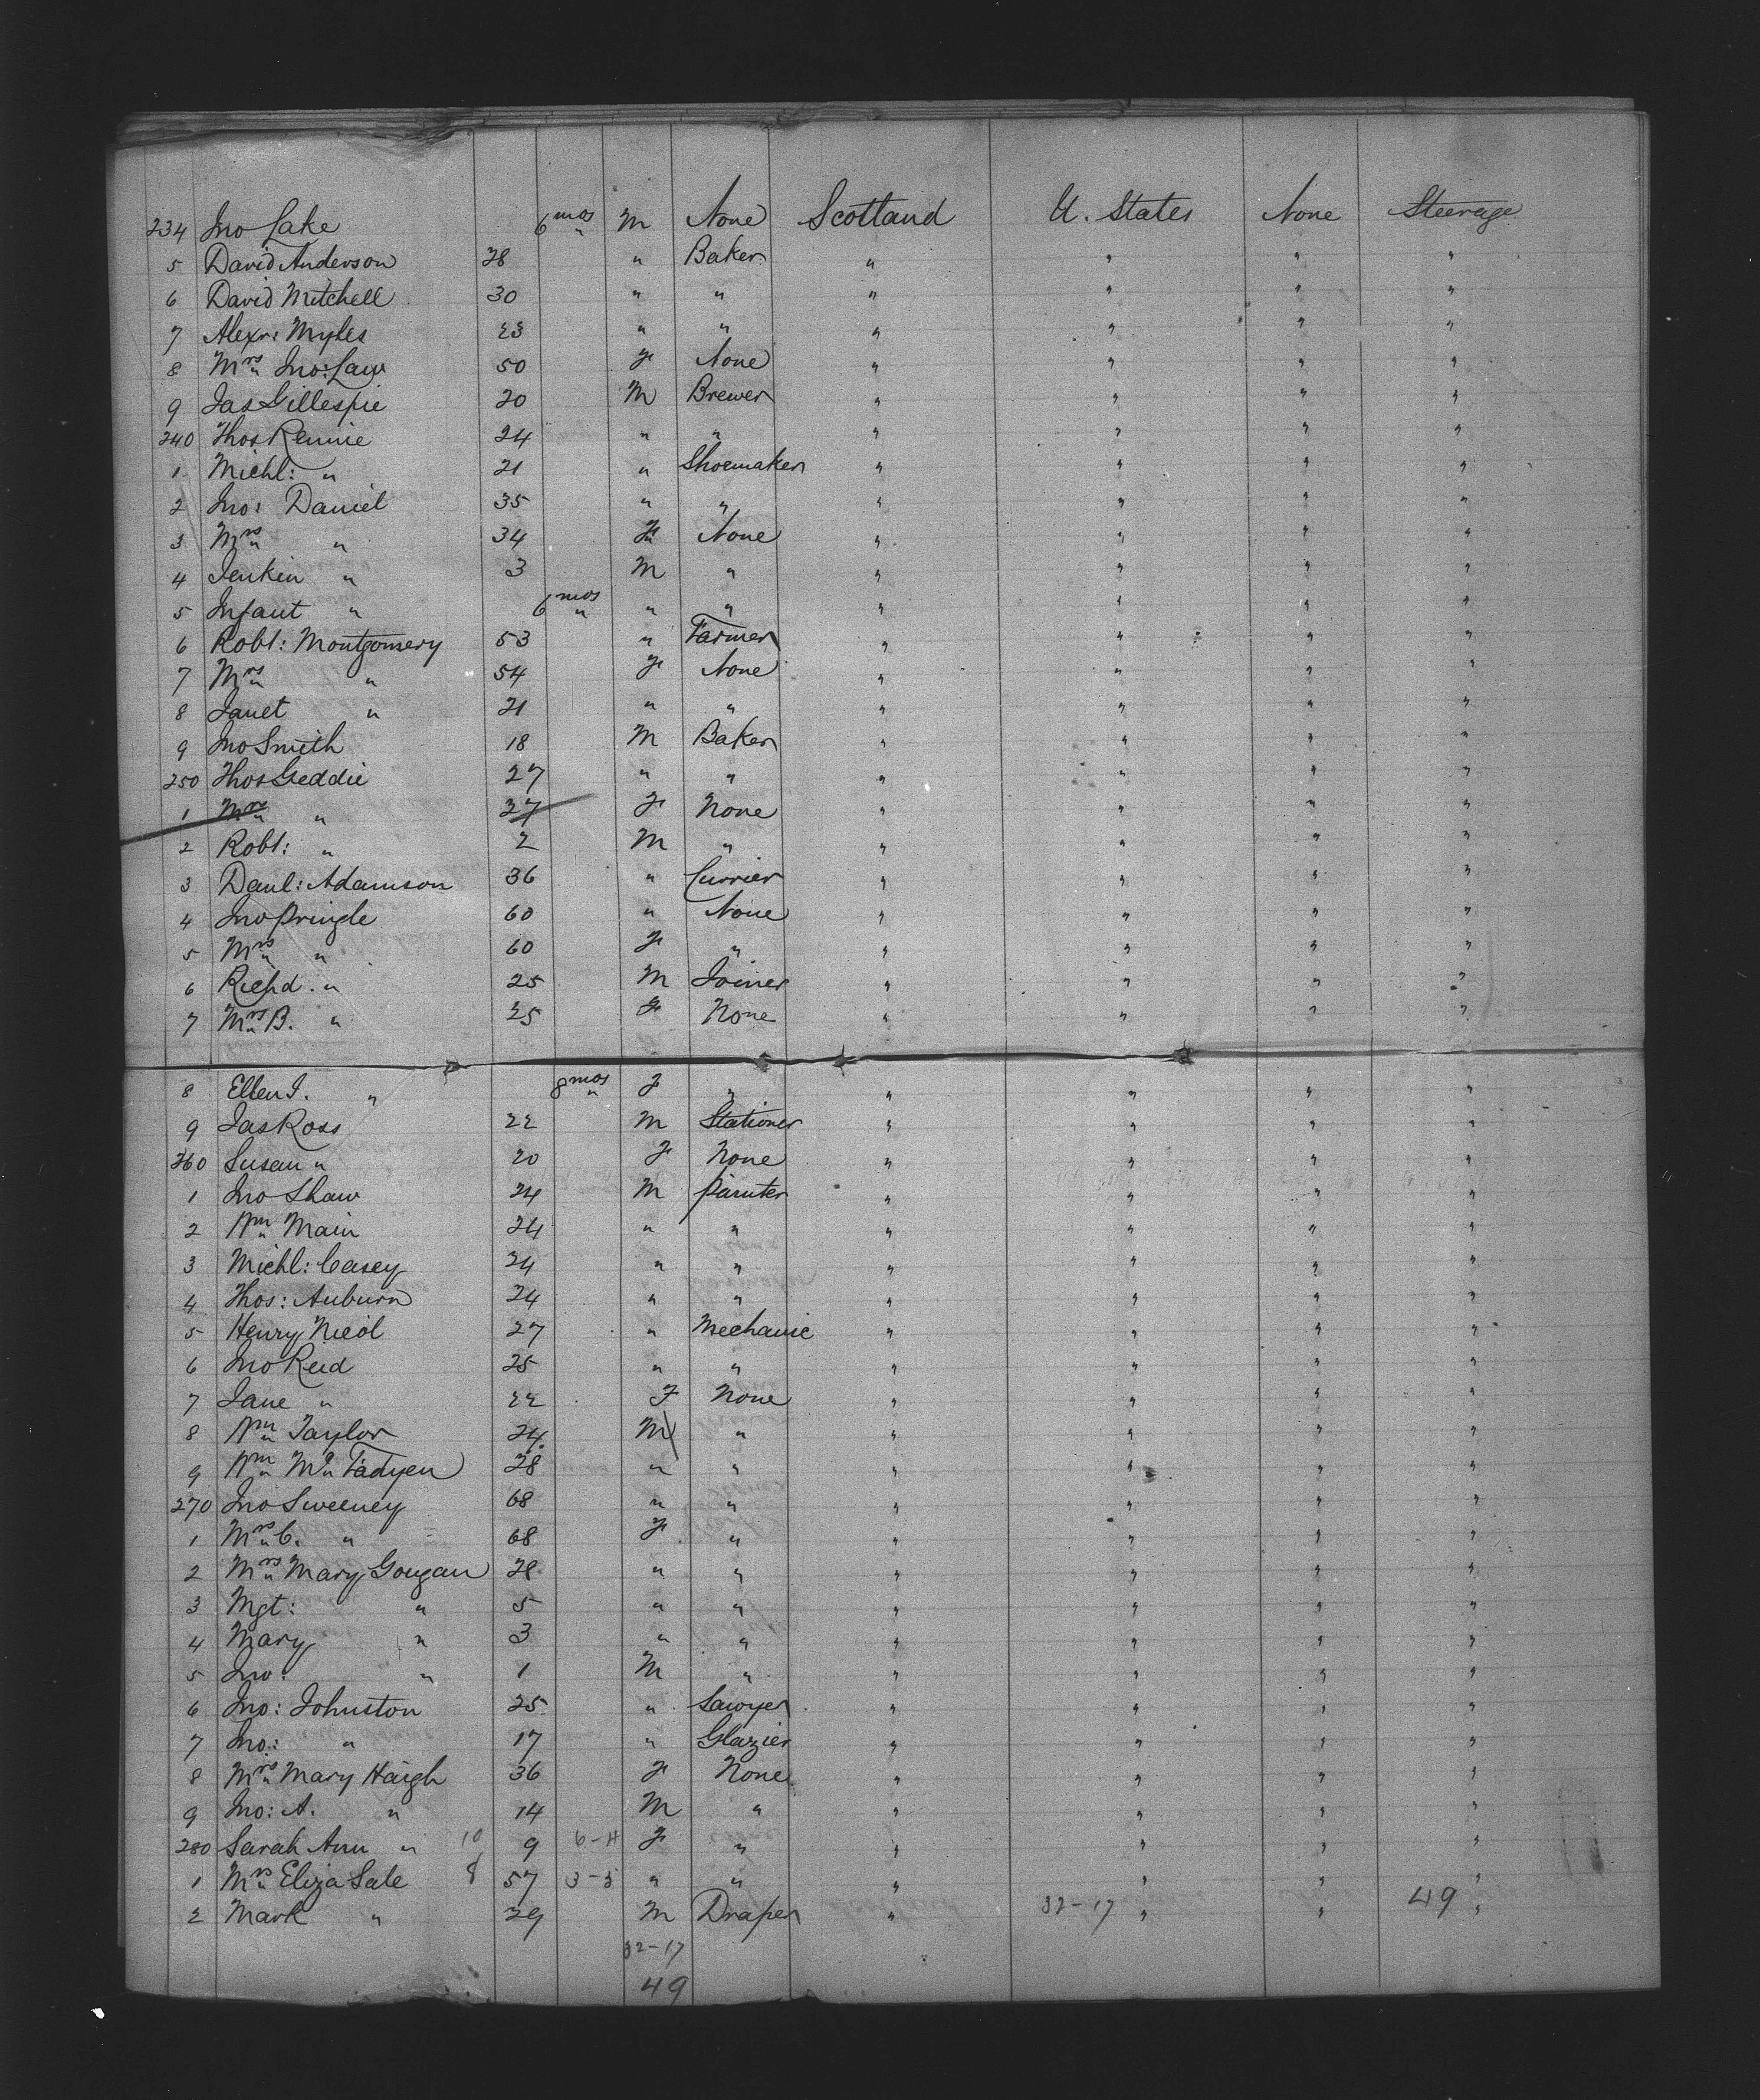 234 Jno Lake 6 mos " M None Scotland U. States None Steerage
5 David Anderson 28 " Baker " " " "
6 David Mitchell 30 " " " " " "
7 Alexr: Myles 23 " " " " " "
8 Mrs Jno: Law 50 F None " " " "
9 Jas Gillespie 20 M Brewer " " " "
240 Thos Rennie 24 " " " " " "
1 Michl: " 21 " Shoemaker " " " "
2 Jno: Daniel 35 " " " " " "
3 Mrs " 34 F None " " " "
4 Jenkin " 3 M " " " " "
5 Infant " 6 mos " " " " " " "
6 Robt: Montgomery 53 " Farmer " " " "
7 Mrs " 54 F None " " " "
8 Janet " 21 " " " " " "
9 Jno Smith 18 M Baker " " " "
250 Thos Geddie 27 " " " " " "
1 Mrs " 27 F None " " " "
2 Robt: " 2 M " " " " "
3 Danl: Adamson 36 " Currier " " " "
4 Jno Pringle 60 " None " " " "
5 Mrs " 60 F " " " " "
6 Richd. " 25 M Joiner " " " "
7 Mrs B. " 25 F None " " " "
8 Ellen J. " 8 mos " F " " " " "
9 Jas Ross 22 M Stationer " " " "
260 Susan " 20 F None " " " "
1 Jno Shaw 24 M Painter " " " "
2 Wm Main 24 " " " " " "
3 Michl: Casey 24 " " " " " "
4 Thos: Auburn 24 " " " " " "
5 Henry Nicol 27 " Mechanic " " " "
6 Jno Reid 25 " " " " " "
7 Jane " 22 F None " " " "
8 Wm Taylor 24 M " " " " "
9 Wm Mc Fadyen 28 " " " " " "
270 Jno Sweeney 68 " " " " " "
1 Mrs C. " 68 F " " " " "
2 Mrs Mary Gougan 28 " " " " " "
3 Mgt: " 5 " " " " " "
4 Mary " 3 " " " " " "
5 Jno: " 1 M " " " " "
6 Jno: Johnston 25 " Sawyer " " " "
7 Jno: " 17 " Glazier " " " "
8 Mrs Mary Haigh 36 F None " " " "
9 Jno: A. " 14 M " " " " "
280 Sarah Ann " 10 9 6-11 F " " " " "
1 Mrs Eliza Sale 8 57 3-5 " " " " " "
2 Mark " 29 M Draper " 32-17 " " 49 "
32-17
49